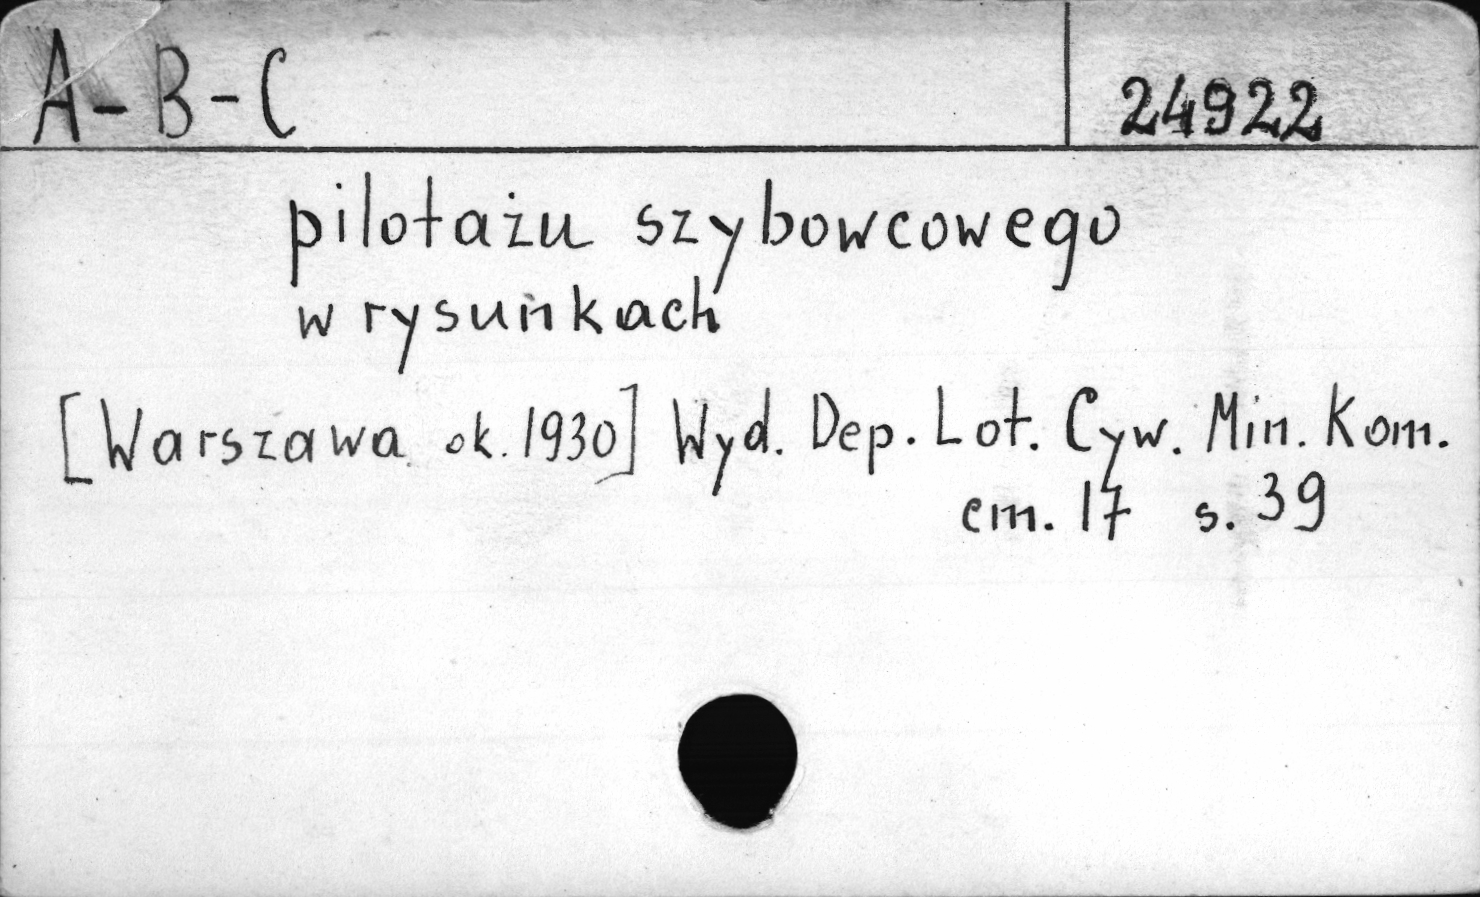 A-B-C 24922
pilotażu szybowcowego
w rysunkach
[Warszawa ok. 1930] Wyd. Dep. Lot. Cyw. Min. Kom.
cm. 17 s. 39